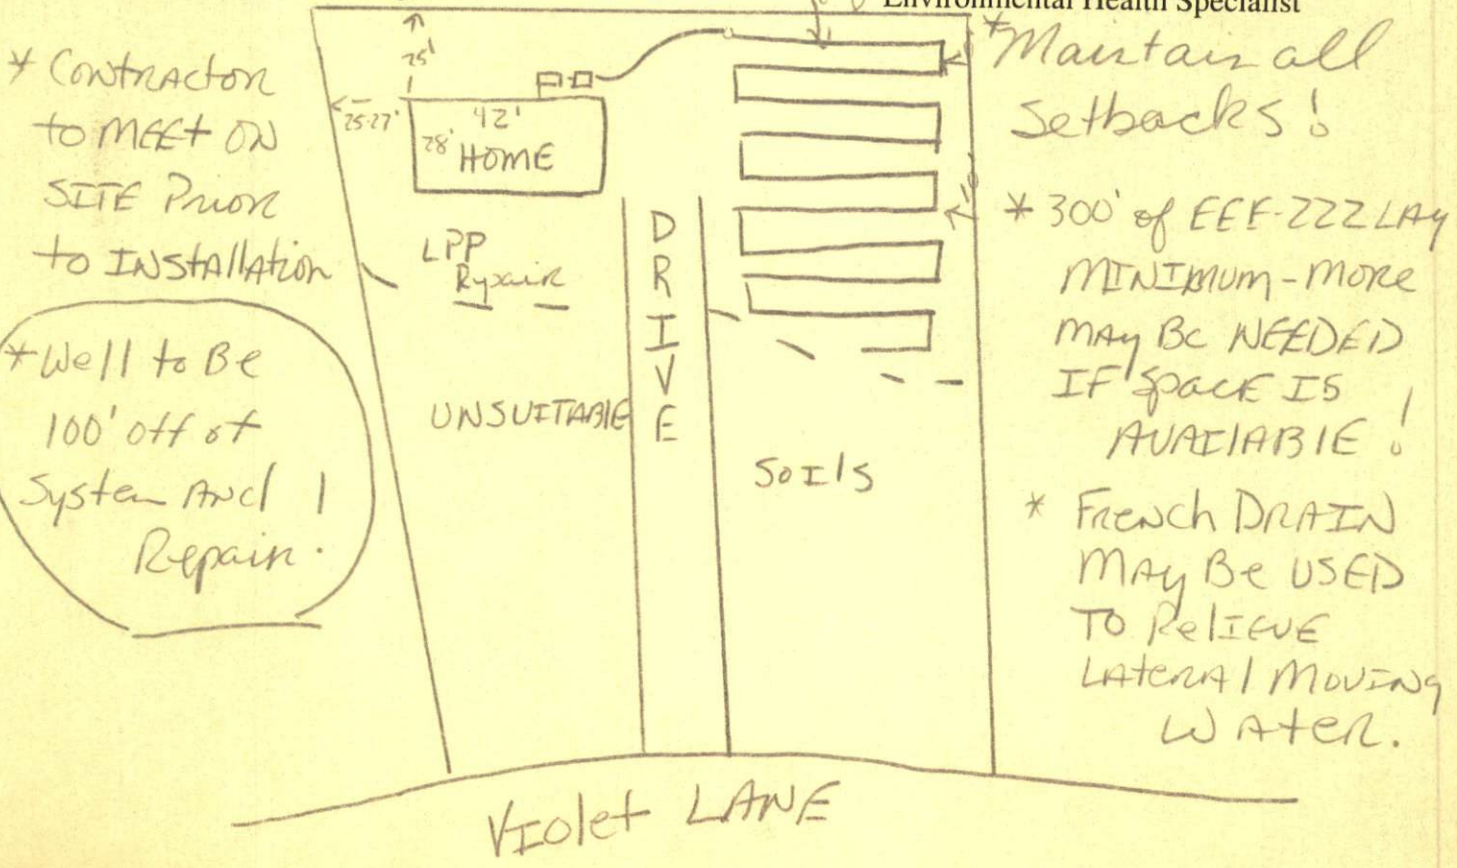 Environmental Health Specialist
* Contractor
to MEET ON
SITE Prior
to INStallation
* Well to Be
100' off of
System And
Repair !
25'
25-27'
42'
28' HOME
LPP
Repair
DRIVE
UNSUITABLE
SOILS
* Maintain all
Setbacks !
* 300' of EEE-ZZZ LAY
MINIMUM - MORE
MAY BE NEEDED
IF SPACE IS
AVAILABLE !
* French DRAIN
MAY Be USED
TO RelIEVE
LAterAl MOVING
WAter.
Violet LANE